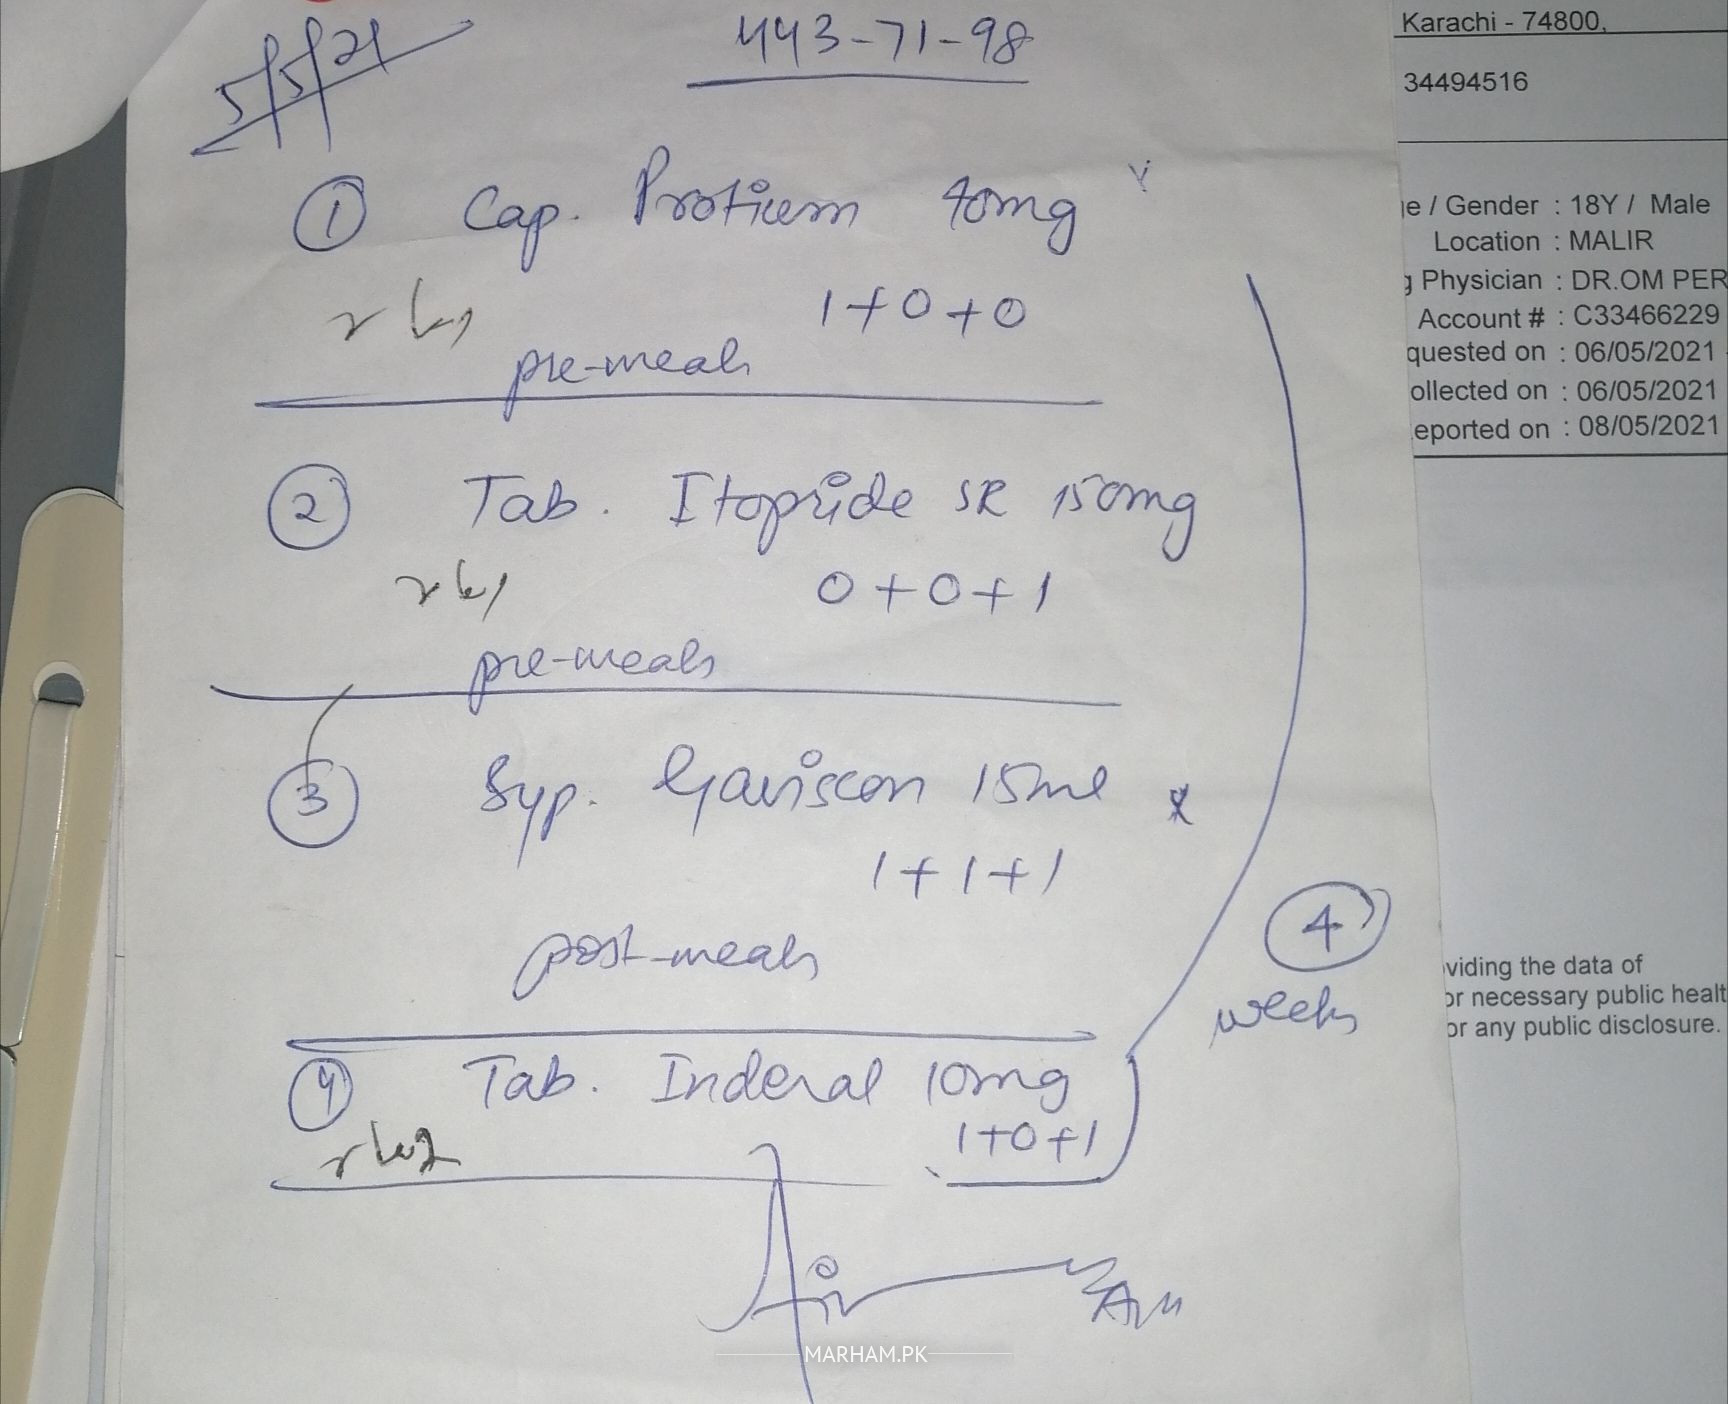 5/5/21
443-71-98
① Cap. Protium 40mg
1+0+0
pre-meals
② Tab. Itopride SR 150mg
0+0+1
pre-meals
③ Syp. Gaviscon 15ml
1+1+1
post-meals
④ Tab. Inderal 10mg
1+0+1
4
weeks
MARHAM.PK
Karachi - 74800,
34494516
e / Gender : 18Y / Male
Location : MALIR
g Physician : DR.OM PER
Account # : C33466229
quested on : 06/05/2021
ollected on : 06/05/2021
eported on : 08/05/2021
viding the data of
or necessary public healt
or any public disclosure.